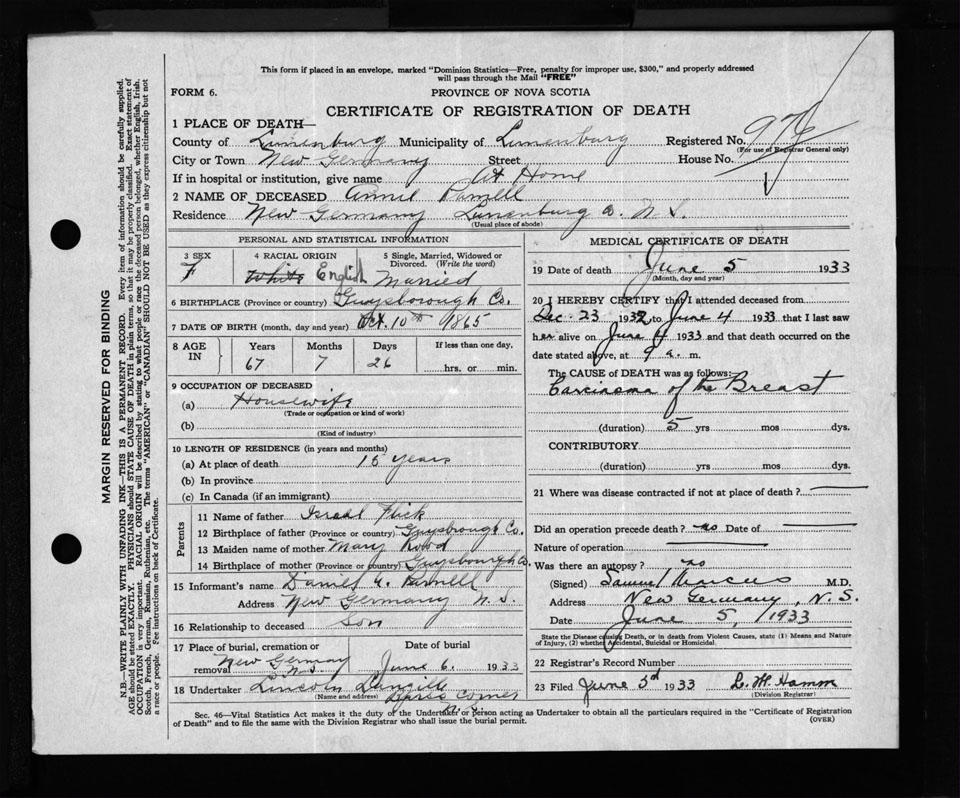 This form if placed in an envelope, marked "Dominion Statistics—Free, penalty for improper use, $300," and properly addressed
will pass through the Mail "FREE"
FORM 6. PROVINCE OF NOVA SCOTIA
CERTIFICATE OF REGISTRATION OF DEATH
1 PLACE OF DEATH—
County of Lunenburg Municipality of Lunenburg Registered No.
(For use of Registrar General only)
City or Town New Germany Street House No.
If in hospital or institution, give name At Home
2 NAME OF DECEASED Annie Parnell
Residence New Germany Lunenburg Co. N.S.
(Usual place of abode)
PERSONAL AND STATISTICAL INFORMATION
3 SEX 4 RACIAL ORIGIN 5 Single, Married, Widowed or Divorced. (Write the word)
F White English Married
6 BIRTHPLACE (Province or country) Guysborough Co.
7 DATE OF BIRTH (month, day and year) Oct. 10th 1865
8 AGE IN Years Months Days If less than one day,
67 7 26 hrs. or min.
9 OCCUPATION OF DECEASED
(a) Housewife
(Trade or occupation or kind of work)
(b)
(Kind of industry)
10 LENGTH OF RESIDENCE (in years and months)
(a) At place of death 15 years
(b) In province
(c) In Canada (if an immigrant)
Parents
11 Name of father Israel
12 Birthplace of father (Province or country) Guysbrough Co.
13 Maiden name of mother Mary
14 Birthplace of mother (Province or country) Guysbourgh Co.
15 Informant's name Daniel Parnell
Address New Germany N.S.
16 Relationship to deceased Son
17 Place of burial, cremation or removal Date of burial
New Germany N.S. June 6. 1933
18 Undertaker Lincoln Langille
(Name and address) Corner N.S.
MEDICAL CERTIFICATE OF DEATH
19 Date of death June 5 1933
(Month, day and year)
20 I HEREBY CERTIFY that I attended deceased from
Dec. 23 1932 to June 4 1933 that I last saw
her alive on June 4 1933 and that death occurred on the
date stated above, at 9 a. m.
The CAUSE of DEATH was as follows:
Carcinoma of the Breast
(duration) 5 yrs mos dys.
CONTRIBUTORY
(duration) yrs. mos. dys.
21 Where was disease contracted if not at place of death?
Did an operation precede death? no Date of
Nature of operation
Was there an autopsy? no
(Signed) Samuel Marcus M.D.
Address New Germany, N.S.
Date June 5, 1933
State the Disease causing Death, or in death from Violent Causes, state (1) Means and Nature
of Injury, (2) whether Accidental, Suicidal or Homicidal.
22 Registrar's Record Number
23 Filed June 5d 1933
(Division Registrar)
Sec. 46—Vital Statistics Act makes it the duty of the Undertaker or person acting as Undertaker to obtain all the particulars required in the "Certificate of Registration
of Death" and to file the same with the Division Registrar who shall issue the burial permit. (OVER)
MARGIN RESERVED FOR BINDING
N.B.—WRITE PLAINLY WITH UNFADING INK—THIS IS A PERMANENT RECORD. Every item of information should be carefully supplied.
AGE should be stated EXACTLY. PHYSICIANS should STATE CAUSE OF DEATH in plain terms, so that it may be properly classified. Exact statement of
OCCUPATION is very important. RACIAL ORIGIN will be described by stating to what people or race the deceased person belonged, whether English, Irish,
Scotch, French, German, Russian, Ruthenian, etc. The terms "AMERICAN" or "CANADIAN" SHOULD NOT BE USED as they express citizenship but not
a race or people. Fee instructions on back of Certificate.